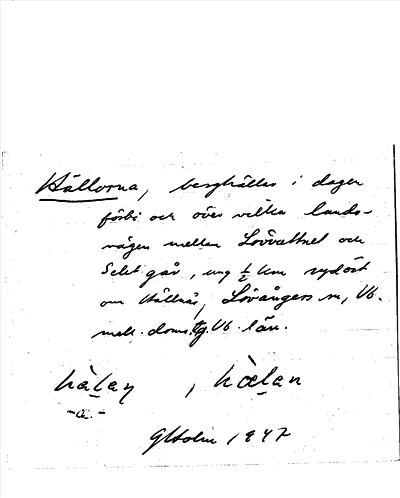 Hällorna, berghällar i dagen
förbi och över vilka lands-
vägen mellan Lövvattnet och
Selet går, ung ½ km sydöst
om Hällnäs, Lövångers sn, Vb.
mell. doms. tg. Vb. län.
hä̀lan , hæ̀lan
-a-
GHolm 1947